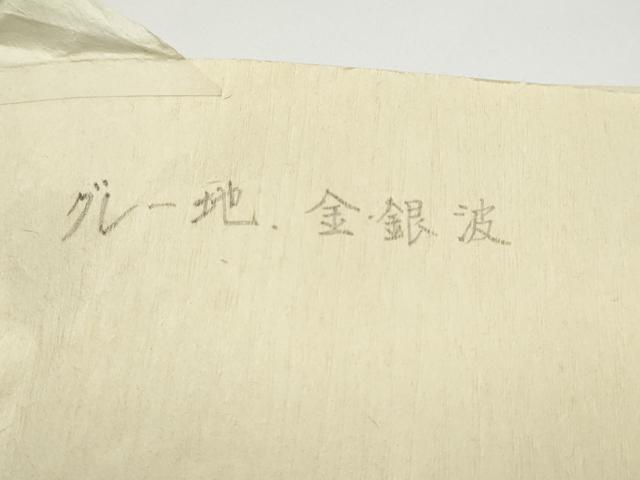 グレー地．金・銀波